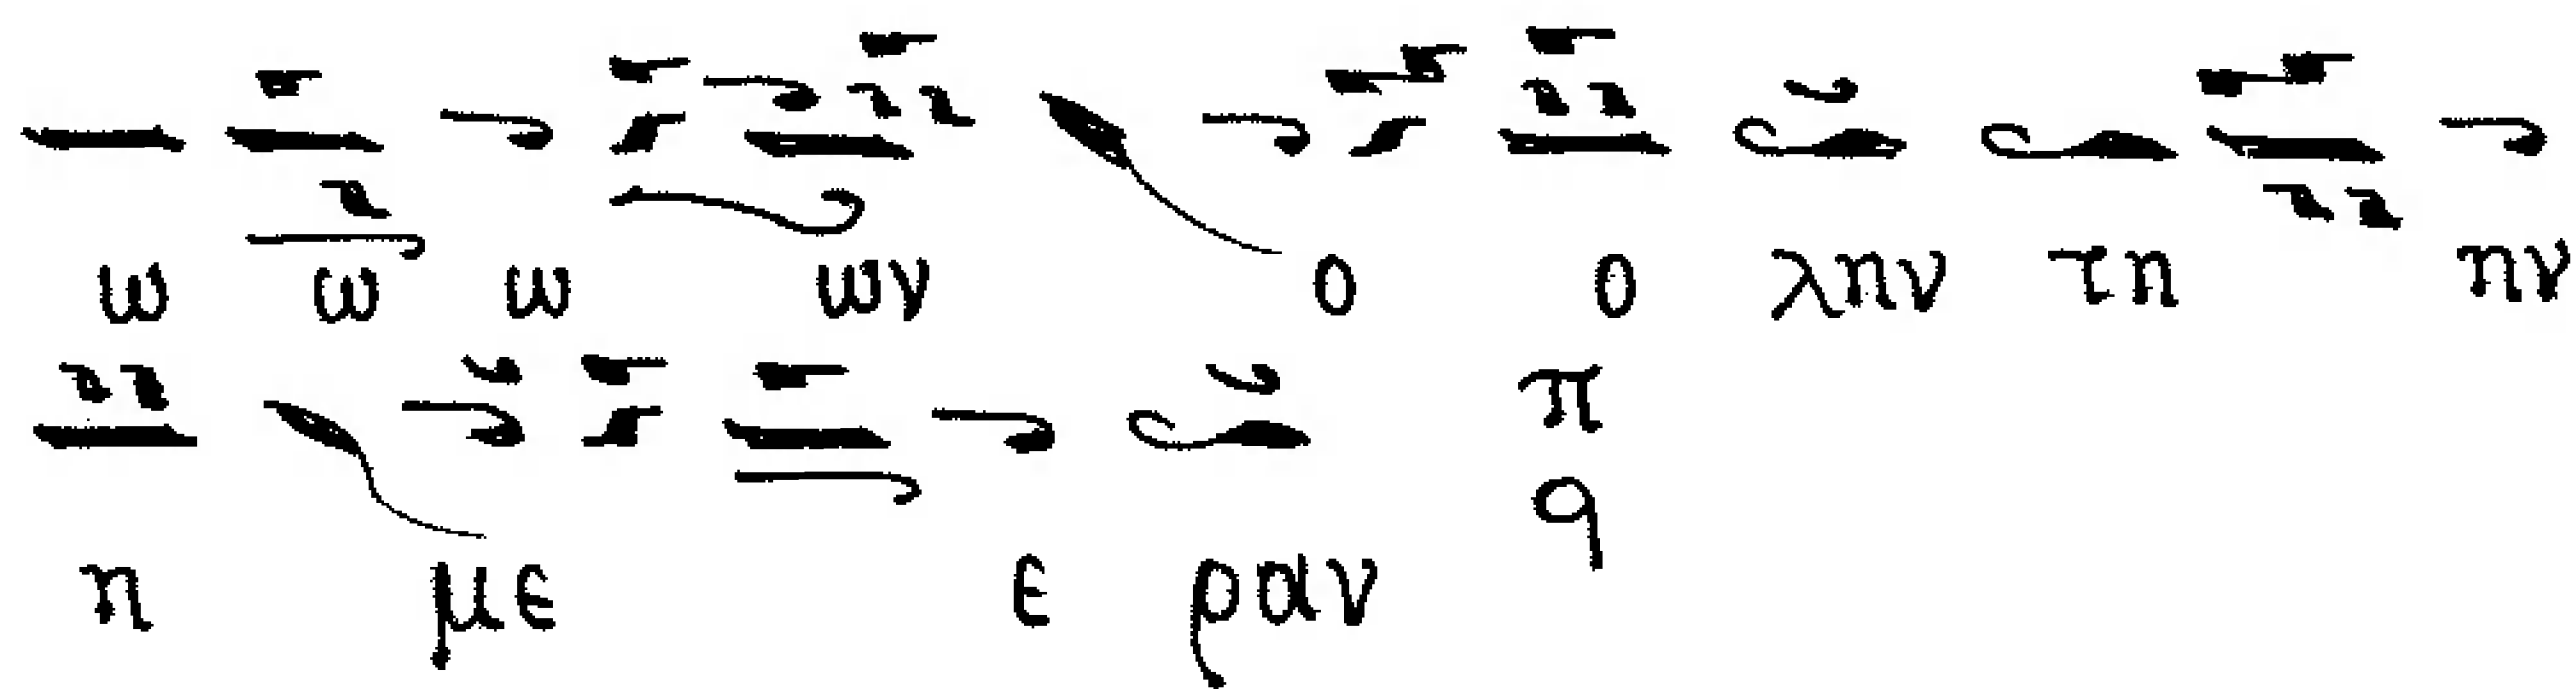 ω ω ω ων ο ο λην τη ην
π
q
η με ε ραν